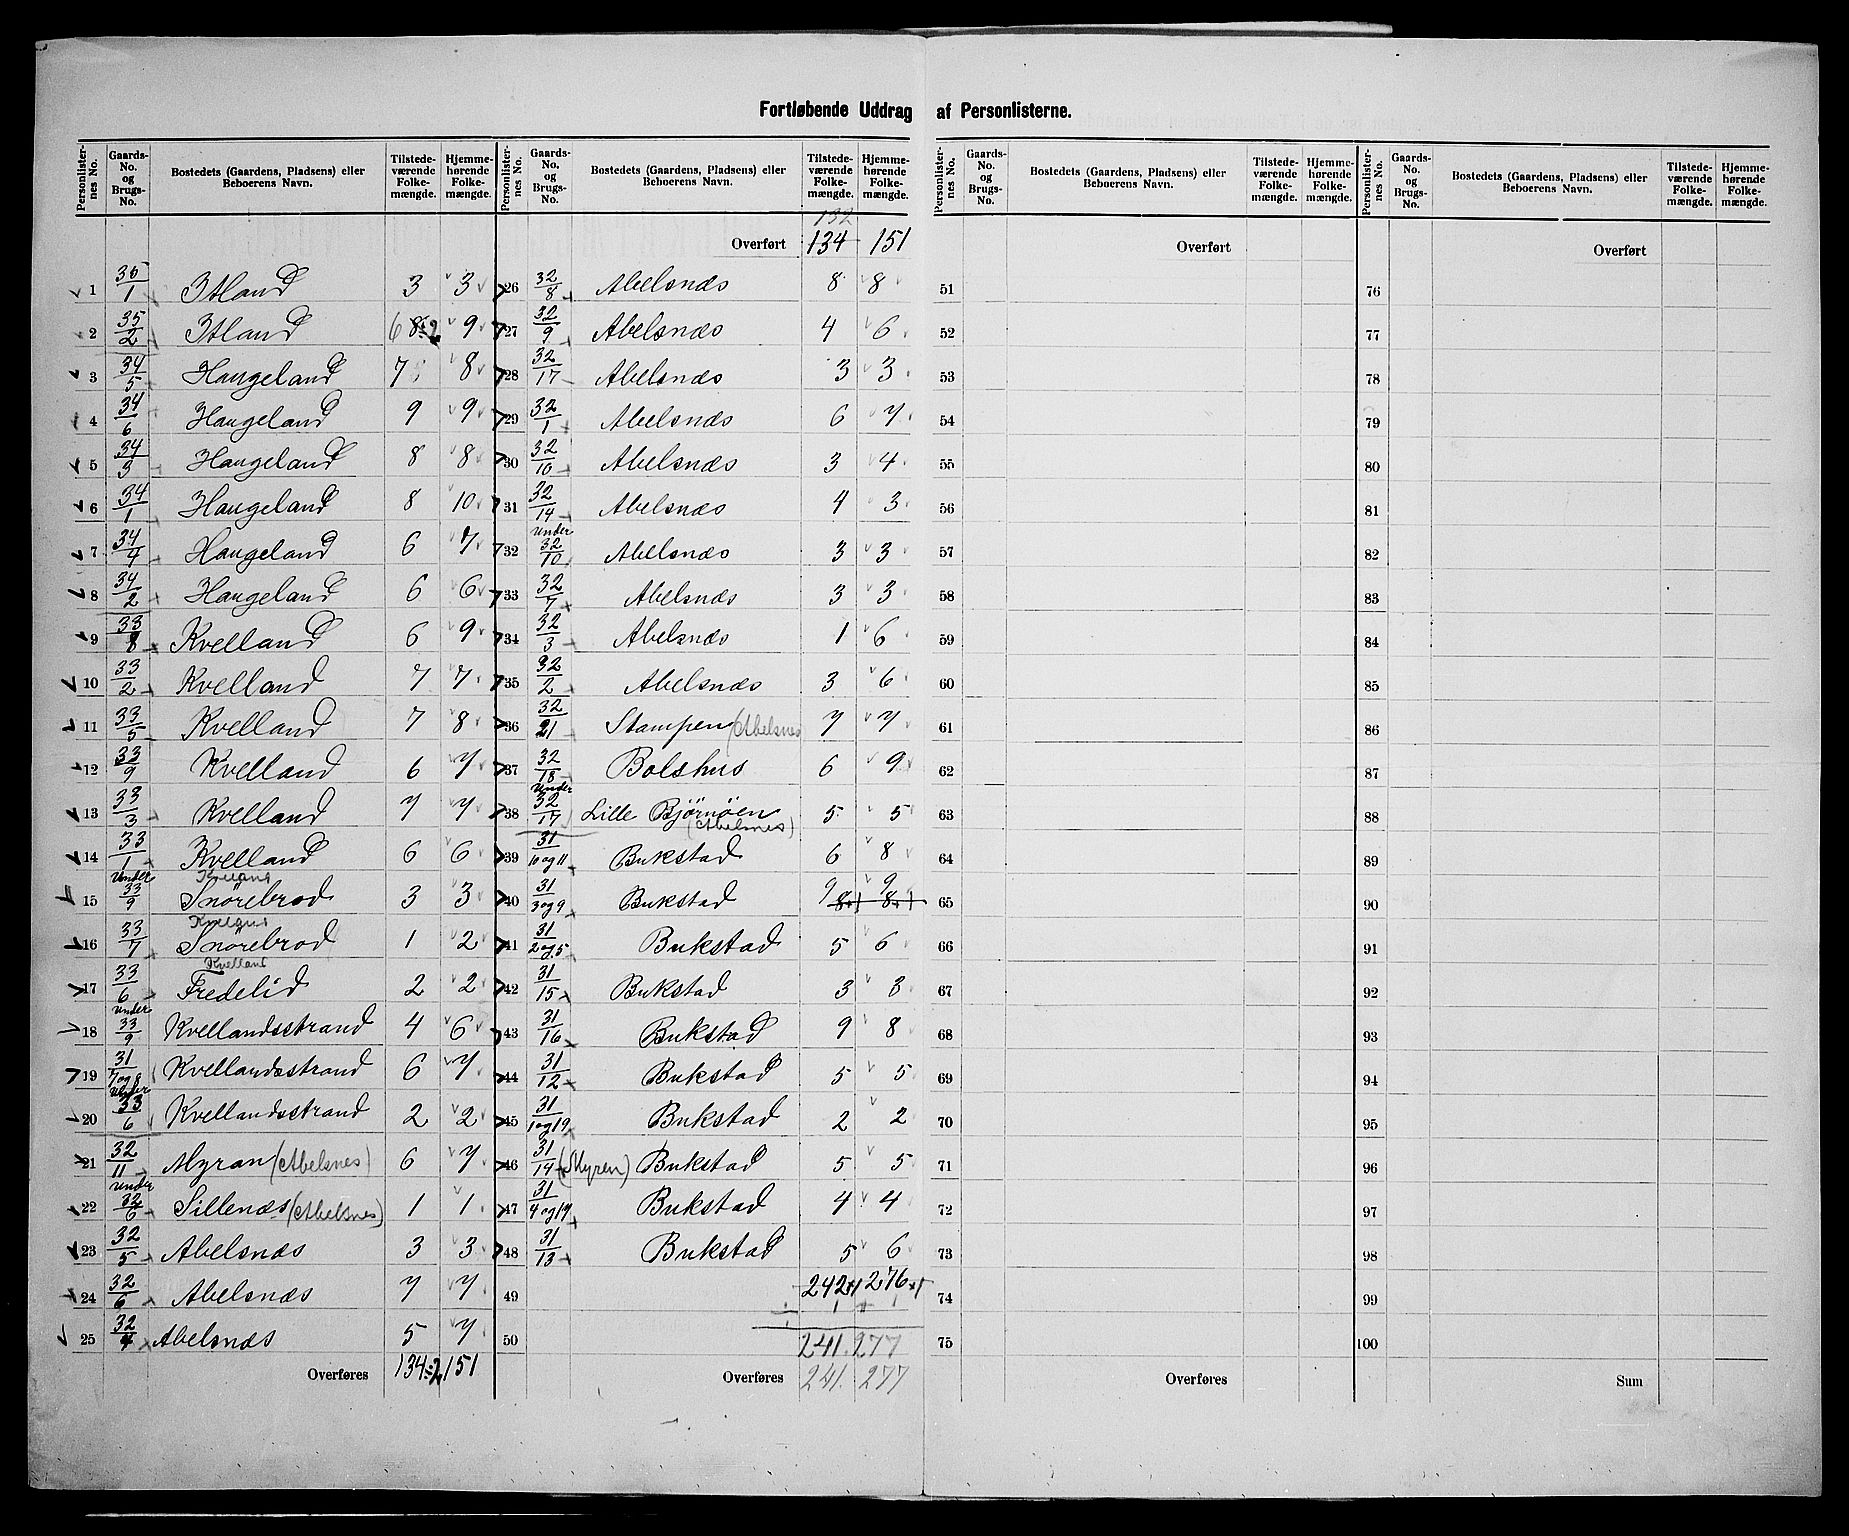 Fortløbende Uddrag af Personlisterne.
Personlister-nes No. | Gaards-No. og Brugs-No. | Bostedets (Gaardens, Pladsens) eller Beboerens Navn. | Tilstede-værende Folke-mængde. | Hjemme-hørende Folke-mængde.
1 35/1 Itland 3 3
2 35/2 Itland 6 8÷2 9
3 34/5 Haugeland 7 8
4 34/6 Haugeland 9 9
5 34/3 Haugeland 8 8
6 34/1 Haugeland 8 10
7 34/4 Haugeland 6 7
8 34/2 Haugeland 6 6
9 33/8 Kvelland 6 9
10 33/2 Kvelland 7 7
11 33/5 Kvelland 7 8
12 33/9 Kvelland 6 7
13 33/3 Kvelland 7 7
14 33/1 Kvelland 6 6
15 Under 33/9 Snørebrod 3 3
16 33/7 Snørebrod 1 2
Kvelland
17 33/6 Fredelid 2 2
18 Under 33/9 Kvellandsstrand 4 6
19 31/7 og 8 Kvellandsstrand 6 7
20 Under 33/6 Kvellandsstrand 2 2
21 32/11 Myran (Abelsnes) 6 7
22 Under 32/6 Sillenæs (Abelsnes) 1 1
23 32/5 Abelsnæs 3 3
24 32/6 Abelsnæs 7 7
25 32/4 Abelsnæs 5 7
Overføres 134÷2 151
Personlister-nes No. | Gaards-No. og Brugs-No. | Bostedets (Gaardens, Pladsens) eller Beboerens Navn. | Tilstede-værende Folke-mængde. | Hjemme-hørende Folke-mængde.
132
Overført 134 151
26 32/8 Abelsnæs 8 8
27 32/9 Abelsnæs 4 6
28 32/17 Abelsnæs 3 3
29 32/1 Abelsnæs 6 7
30 32/10 Abelsnæs 3 4
31 32/14 Abelsnæs 4 3
32 Under 32/10 Abelsnæs 3 3
33 32/7 Abelsnæs 3 3
34 32/3 Abelsnæs 1 6
35 32/2 Abelsnæs 3 6
36 32/21 Stampen (Abelsnes 7 7
37 32/18 Bolshus 6 9
38 Under 32/17 Lille Bjørnøen 5 5
(Abelsnes)
39 31/10 og 11 Bukstad 6 8
40 31/3 og 9 Bukstad 9 8+1 9 8+1
41 31/2 og 5 Bukstad 5 6
42 31/15 Bukstad 3 3
43 31/16 Bukstad 9 8
44 31/12 Bukstad 5 5
45 31/1 og 19 Bukstad 2 2
46 31/14 (Myren) Bukstad 5 5
47 31/4 og 19 Bukstad 4 4
48 31/13 Bukstad 5 6
49 242+1 276+1
50 241 277
Overføres 241. 277
Personlister-nes No. | Gaards-No. og Brugs-No. | Bostedets (Gaardens, Pladsens) eller Beboerens Navn. | Tilstede-værende Folke-mængde. | Hjemme-hørende Folke-mængde.
Overført
51
52
53
54
55
56
57
58
59
60
61
62
63
64
65
66
67
68
69
70
71
72
73
74
75
Overføres
Personlister-nes No. | Gaards-No. og Brugs-No. | Bostedets (Gaardens, Pladsens) eller Beboerens Navn. | Tilstede-værende Folke-mængde. | Hjemme-hørende Folke-mængde.
Overført
76
77
78
79
80
81
82
83
84
85
86
87
88
89
90
91
92
93
94
95
96
97
98
99
100
Sum